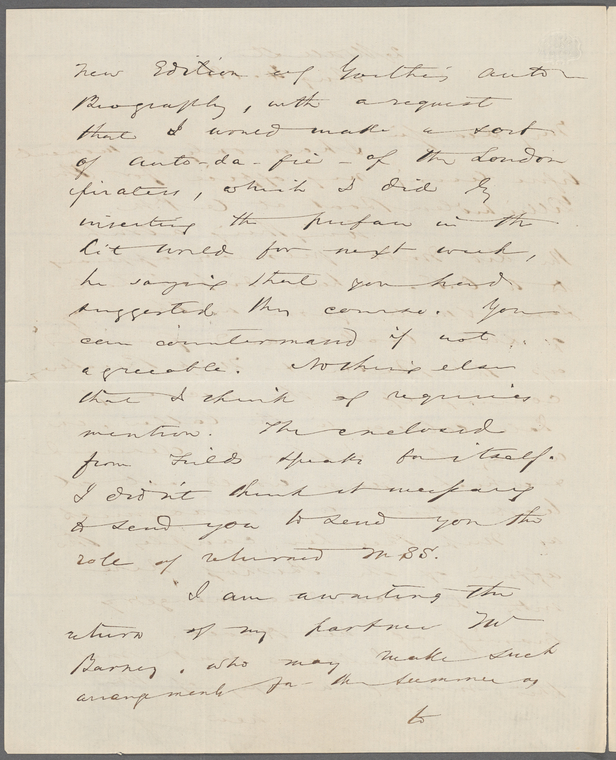 new Edition of Goethe's Auto
Biography, with a request
that I would make a sort
of auto-da-fie - of the London
pirates, which I did by
inserting the preface in the
Lit World for next week,
he saying that you had
suggested this course. You
can countermand if not
agreeable. Nothing else
that I think of requires
mention. The enclosed
from Fields speaks for itself.
I didn't think it necessary
to send you to send you the
role of returned MSS.
I am awaiting the
return of my partner Mr
Barney, who may make such
arrangements for the summer as
to